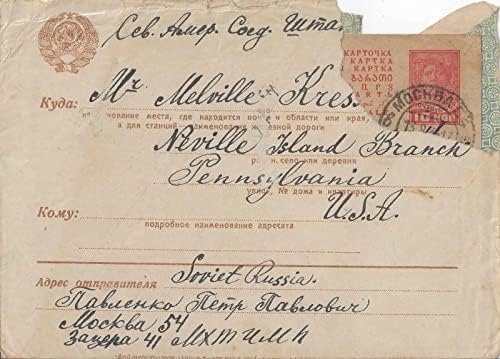 Сев. Амер. Соед. Шта
КАРТОЧКА
КАРТКА
КАРТКА
ᲑᲐᲠᲐᲗᲘ
МОСКВА
Куда: Mr Melville Kres
менование места, где находится почт области или края,
а для станций наименование железной дороги
Neville Island Branch
село или деревня
Pennsylvania
улица, № дома и квартиры
U.S.A.
Кому:
подробное наименование адресата
Soviet Russia.
Адрес отправителя
Павленко Петр Павлович
Москва 54
Зацепа 41 МХТИМП